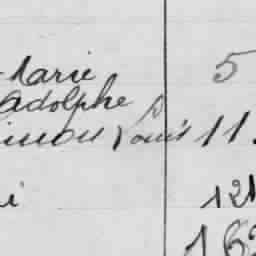 Marie 5
Adolphe
imon Louis 11.
i 121
162